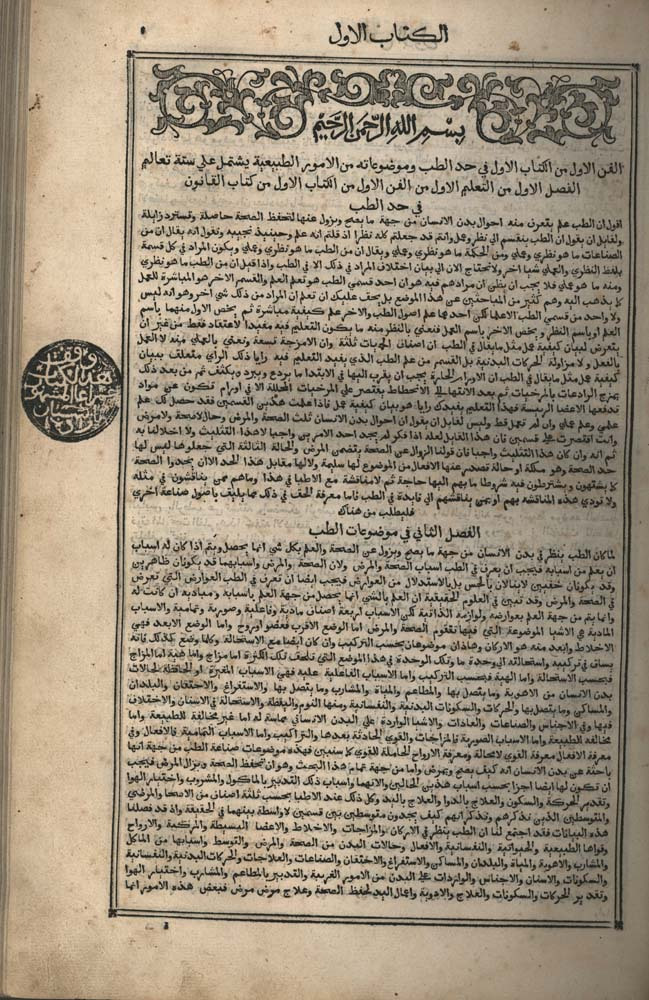 الكتاب الاول
بسم الله الرحمن الرحيم
الفن الاول من الكتاب الاول في حد الطب وموضوعاته من الامور الطبيعية يشتمل علي ستة تعاليم
الفصل الاول من التعليم الاول من الفن الاول من الكتاب الاول من كتاب القانون
في حد الطب
اقول ان الطب علم يتعرف منه احوال بدن الانسان من جهة ما يصح ويزول عنها لتحفظ الصحة حاصلة وتسترد زايلة
ولقايل ان يقول ان الطب ينقسم الي نظر وعمل وانتم قد جعلتم كله نظرا اذ قلتم انه علم وحينيذ نجيبه ونقول انه يقال ان من
الصناعات ما هو نظري وعملي ومن الحكمة ما هو نظري وعملي ويقال ان من الطب ما هو نظري وعملي ويكون المراد في كل قسمة
بلفظ النظري والعملي شيا اخر ولا نحتاج الان الي بيان اختلاف المراد في ذلك الا في الطب واذا قيل ان من الطب ما هو نظري
ومنه ما هو عملي فلا يجب ان يظن ان مرادهم فيه هو ان احد قسمي الطب هو تعلم العلم والقسم الاخر هو المباشرة للعمل
كما يذهب اليه وهم كثير من الباحثين عن هذا الموضع بل يحق عليك ان تعلم ان المراد من ذلك شي اخر وهو انه ليس
ولا واحد من قسمي الطب الا علما لكن احدهما علم اصول الطب والاخر علم كيفية مباشرة ثم يخص الاول منهما باسم
العلم او باسم النظر ويخص الاخر باسم العمل فنعني بالنظر منه ما يكون التعليم فيه مفيدا لاعتقاد فقط من غير ان
يتعرض لبيان كيفية عمل مثل ما يقال في الطب ان اصناف الحميات ثلثة وان الامزجة تسعة ونعني بالعملي منه لا العمل
بالفعل ولا مزاولة الحركات البدنية بل القسم من علم الطب الذي يفيد التعليم فيه رايا ذلك الراي متعلق ببيان
كيفية عمل مثل ما يقال في الطب ان الاورام الحارة يجب ان يقرب اليها في الابتدا ما يردع ويبرد ويكثف ثم من بعد ذلك
تمزج الرادعات بالمرخيات ثم بعد الانتهاء الي الانحطاط يقتصر علي المرخيات المحللة الا في اورام تكون عن مواد
تدفعها الاعضا الريسة فهذا التعليم يفيدك رايا هو بيان كيفية عمل فاذا علمت هذين القسمين فقد حصل لك علم
علمي وعلم عملي وان لم تعمل قط وليس لقايل ان يقول ان احوال بدن الانسان ثلث الصحة والمرض وحال لا صحة ولا مرض
وانت اقتصرت علي قسمين فان هذا القايل لعله اذا فكر لم يجد احد الامرين واجبا لا هذا التثليث ولا اخلالنا به
ثم انه وان كان هذا التثليث واجبا فان قولنا الزوال عن الصحة يتضمن المرض والحالة الثالثة التي جعلوها ليس لها
حد الصحة وهو ملكة او حالة تصدر عنها الافعال من الموضوع لها سليمة ولا لها مقابل هذا الحد الا ان يحدوا الصحة
كما يشتهون ويشترطون فيه شروطا ما بهم اليها حاجة ثم لا مناقشة مع الاطبا في هذا وما هم ممن يناقشون في مثله
ولا تودي هذه المناقشة بهم او بمن يناقشهم الي فايدة في الطب فاما معرفة الحق في ذلك مما يليق باصول صناعة اخري
فليطلب من هناك
الفصل الثاني في موضوعات الطب
لما كان الطب ينظر في بدن الانسان من جهة ما يصح ويزول عن الصحة والعلم بكل شي انما يحصل ويتم اذا كان له اسباب
ان يعلم من اسبابه فيجب ان يعرف في الطب اسباب الصحة والمرض ولان الصحة والمرض واسبابهما قد يكونان ظاهرين
وقد يكونان خفيين لا ينالان بالحس بل بالاستدلال من العوارض فيجب ايضا ان تعرف في الطب العوارض التي تعرض
في الصحة والمرض وقد تبين في العلوم الحقيقية ان العلم بالشي انما يحصل من جهة العلم باسبابه ومباديه ان كانت له
وانما يتم من جهة العلم بعوارضه ولوازمه الذاتية لكن الاسباب اربعة اصناف مادية وفاعلية وصورية وتمامية والاسباب
المادية هي الاشيا الموضوعة التي فيها تتقوم الصحة والمرض اما الموضوع الاقرب فعضو او روح واما الموضوع الابعد فهي
الاخلاط وابعد منه هو الاركان وهاذان موضوعان بحسب التركيب وان كان ايضا مع الاستحالة وكلما وضع كذلك فانه
يساق في تركيبه واستحالته الي وحدة ما وتلك الوحدة في هذا الموضع التي تلحق تلك الكثرة اما مزاج واما هية اما المزاج
فبحسب الاستحالة واما الهية فبحسب التركيب واما الاسباب الفاعلية فهي الاسباب المغيرة او الحافظة لحالات
بدن الانسان من الاهوية وما يتصل بها والمطاعم والمياة والمشارب وما يتصل بها والاستفراغ والاحتقان والبلدان
والمساكن وما يتصل بها والحركات والسكونات البدنية والنفسانية ومنها النوم واليقظة والاستحالة في الاسنان والاختلاف
فيها وفي الاجناس والصناعات والعادات والاشيا الواردة علي البدن الانساني مماسة له اما غير مخالفة للطبيعة واما
مخالفة للطبيعة واما الاسباب الصورية فالمزاجات والقوي الحادثة بعدها والتراكيب واما الاسباب التمامية فالافعال وفي
معرفة الافعال معرفة القوي لا محالة ومعرفة الارواح الحاملة للقوي كما سنبين فهذه موضوعات صناعة الطب من جهة انها
باحثة عن بدن الانسان انه كيف يصح ويمرض واما من جهة تمام هذا البحث وهو ان تحفظ الصحة ويزال المرض فيجب
ان تكون لها ايضا اجزا بحسب اسباب هذين الحالين والاتهما واسباب ذلك التدبير بالماكول والمشروب واختيار الهوا
وتقدير الحركة والسكون والعلاج بالدوا والعلاج باليد وكل ذلك عند الاطبا بحسب ثلثة اصناف من الاصحا والمرضي
والمتوسطين الذين نذكرهم ونذكر انهم كيف يعدون متوسطين بين قسمين لا واسطة بينهما في الحقيقة واذ قد فصلنا
هذه البيانات فقد اجتمع لنا ان الطب ينظر في الاركان والمزاجات والاخلاط والاعضا البسيطة والمركبة والارواح
وقواها الطبيعية والحيوانية والنفسانية والافعال وحالات البدن من الصحة والمرض والتوسط واسبابها من الماكل
والمشارب والاهوية والمياة والبلدان والمساكن والاستفراغ والاحتقان والصناعات والعادات والحركات البدنية والنفسانية
والسكونات والاسنان والاجناس والواردات علي البدن من الامور الغريبة والتدبير بالمطاعم والمشارب واختيار الهوا
وتقدير الحركات والسكونات والعلاج بالادوية واعمال اليد لحفظ الصحة وعلاج مرض مرض فبعض هذه الامور انما